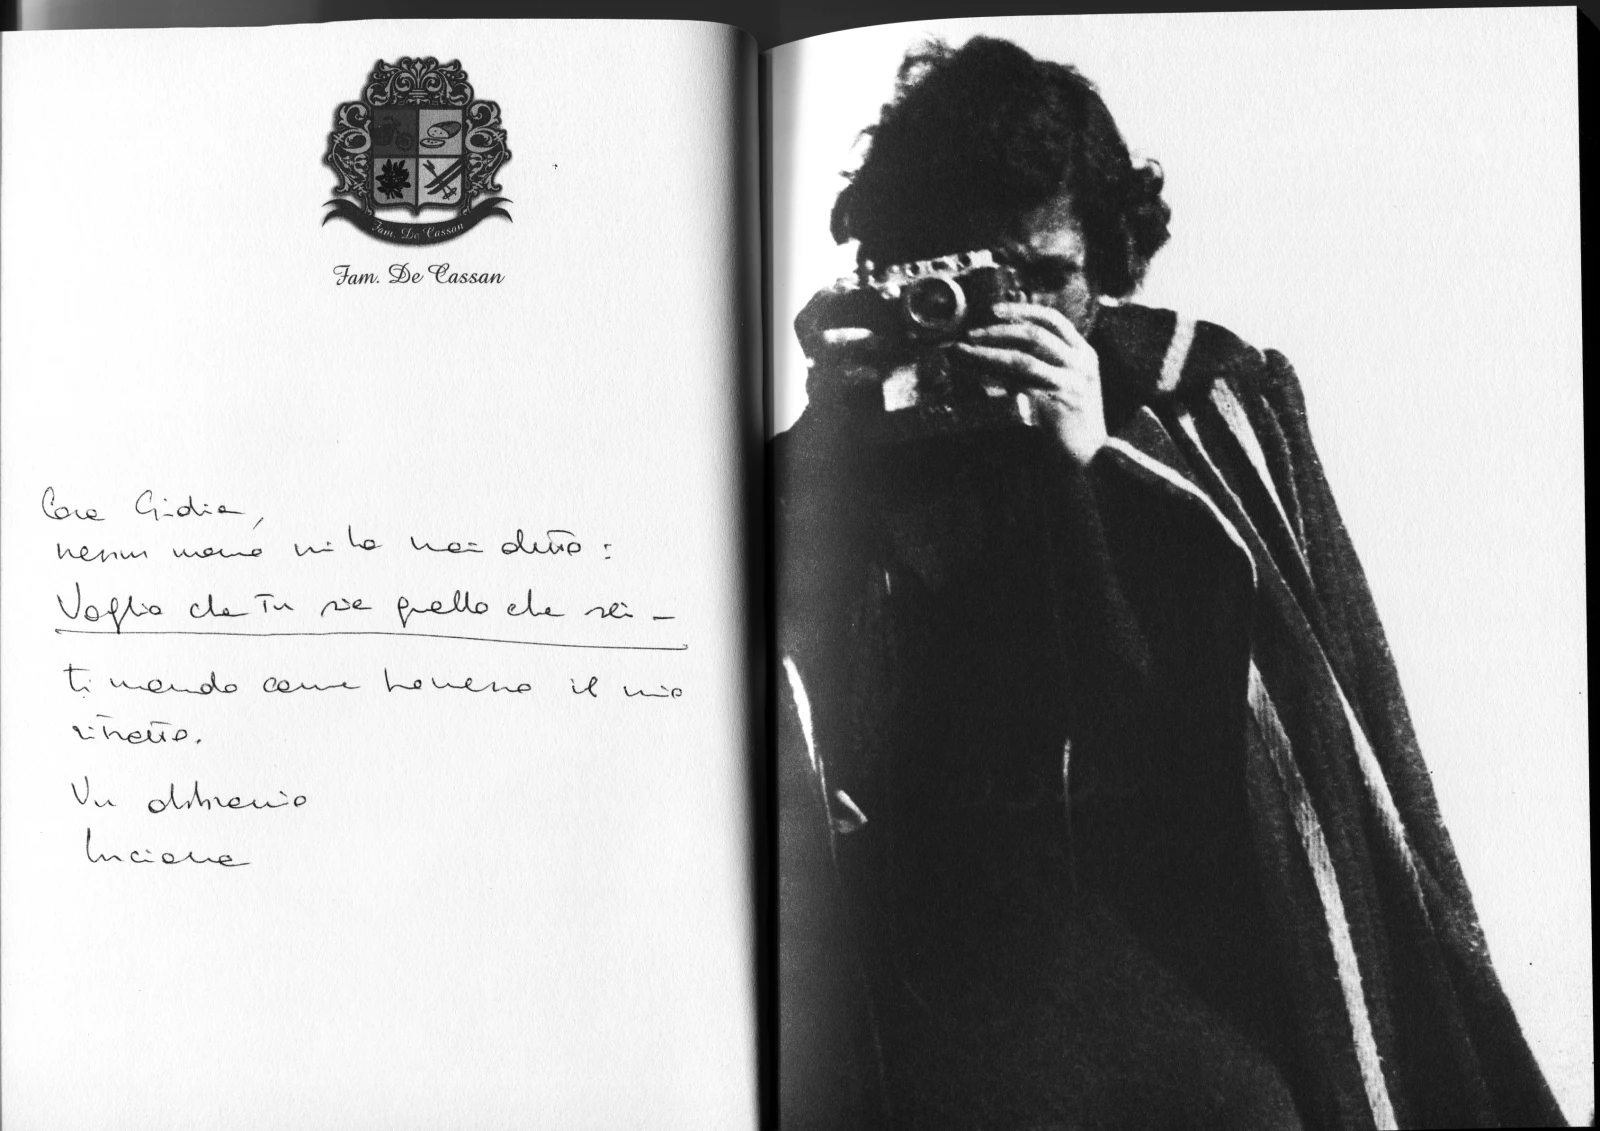 Fam. De Cassan
Fam. De Cassan
Cara Giidia,
nessun mi ha mai detto:
Voglio che Tu sia quello che sei –
ti mando come il mio
ritratto.
Un abbraccio
Luciana